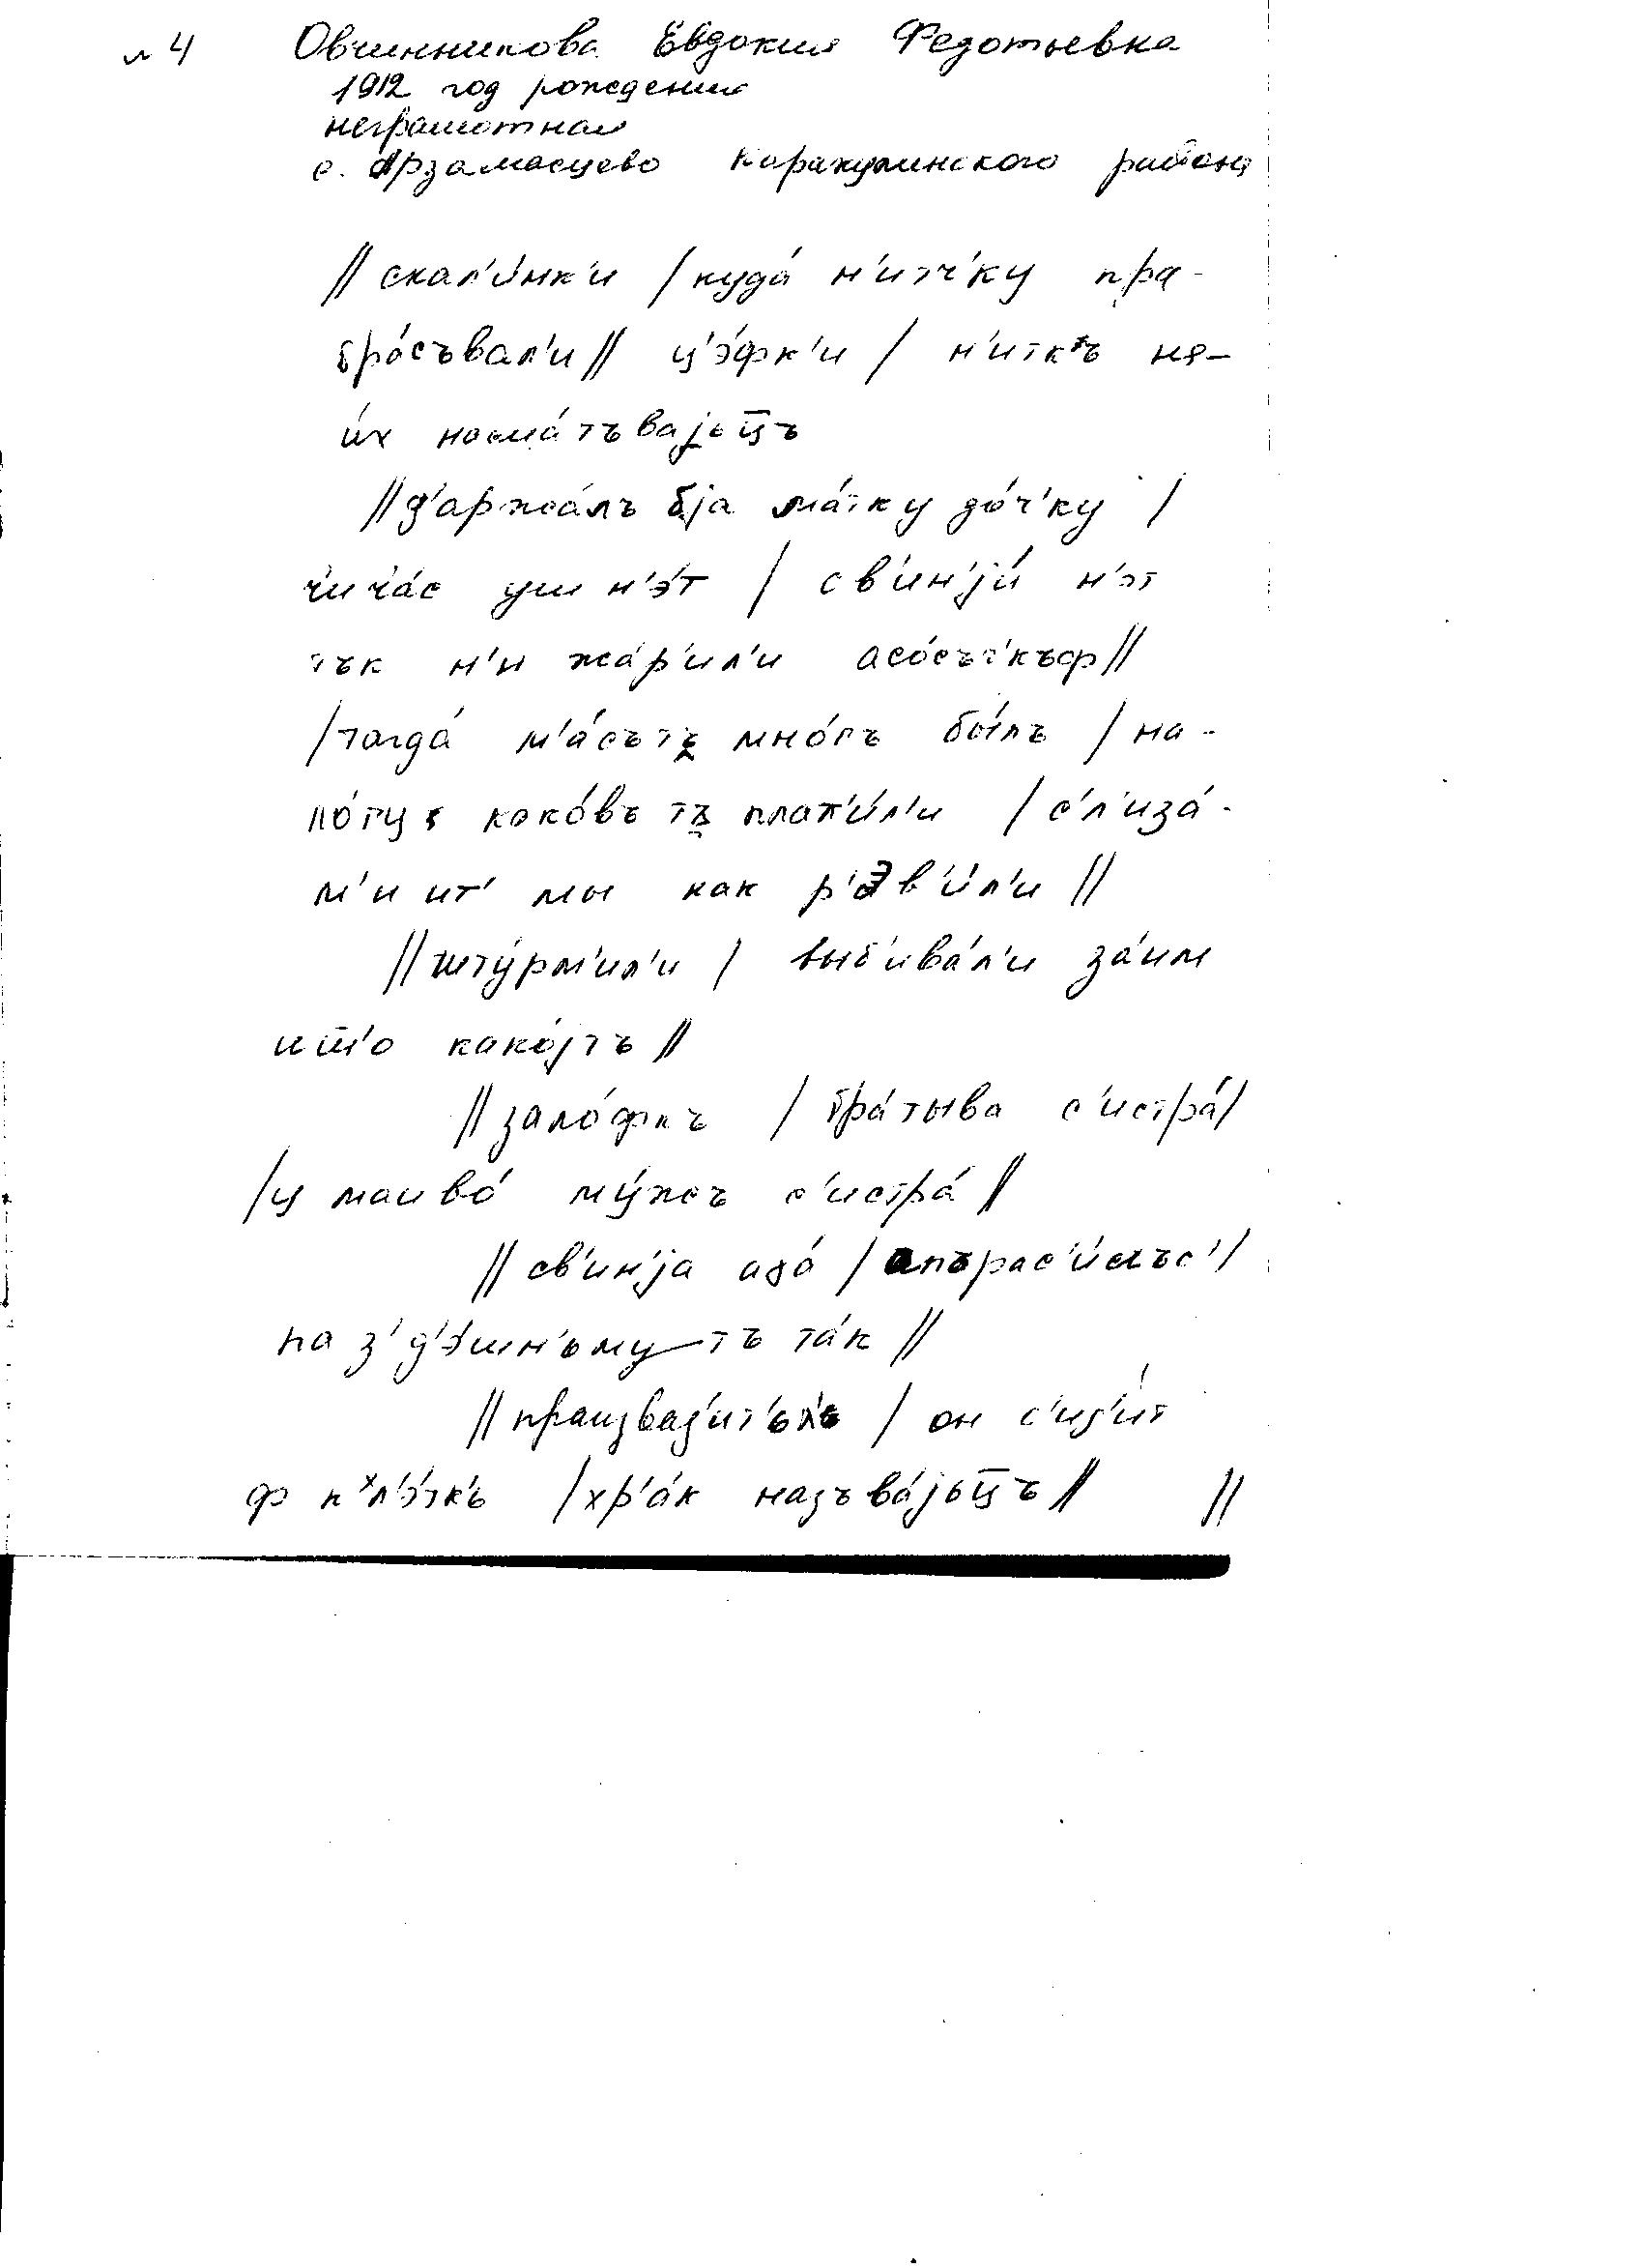 № 4 Овчинникова Евдокия Федотьевна
1912 год рождения
неграмотная
с. Арзамасцево Каракулинского района
// скал'и́нк'и / куда́ н'итч'ку пра-
бро́съвал'и // ц'э́фк'и / н'иткъ на-
и́х насма́тъвајьц̅ъ
// д'аржа́лъ бја ма́тку до́ч'ку /
ч'ич'а́с уш н'э́т / св'ин'ји́ н'эт
тък н'и жа́р'ил'и асо́съч'къф //
/ тагда́ м'а́сътъ мно́гъ бы́лъ / на-
ло́гу како́въ тъ плат'и́л'и / с'л'иза́-
м'и ит' мы как р'эв'и́л'и //
// шту́рм'ил'и / выб'ива́л'и за́им
иш̅'о како́јтъ //
// зало́фкъ / бра́тыва с'истра́ /
/ у маиво́ му́жъ с'истра́ //
// св'ин'ја ада́ / апърас'и́лъс' /
па з'д'э́шн'ьму-тъ та́к //
// праизвад'ит'ьл'ь / он с'ид'и́т
ф к^л'э́тк'ь / хр'а́кназъва́јьц̅ъ // //